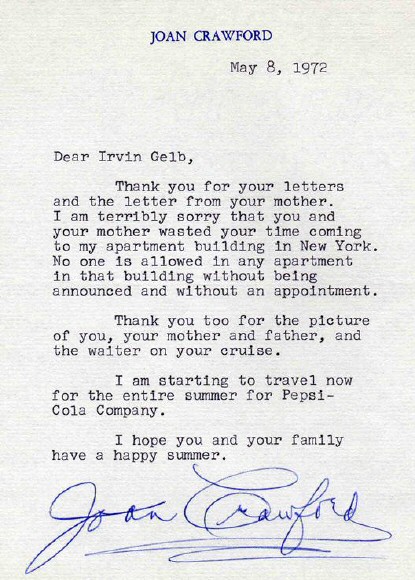 JOAN CRAWFORD
May 8, 1972
Dear Irvin Gelb,
Thank you for your letters
and the letter from your mother.
I am terribly sorry that you and
your mother wasted your time coming
to my apartment building in New York.
No one is allowed in any apartment
in that building without being
announced and without an appointment.
Thank you too for the picture
of you, your mother and father, and
the waiter on your cruise.
I am starting to travel now
for the entire summer for Pepsi-
Cola Company.
I hope you and your family
have a happy summer.
Joan Crawford